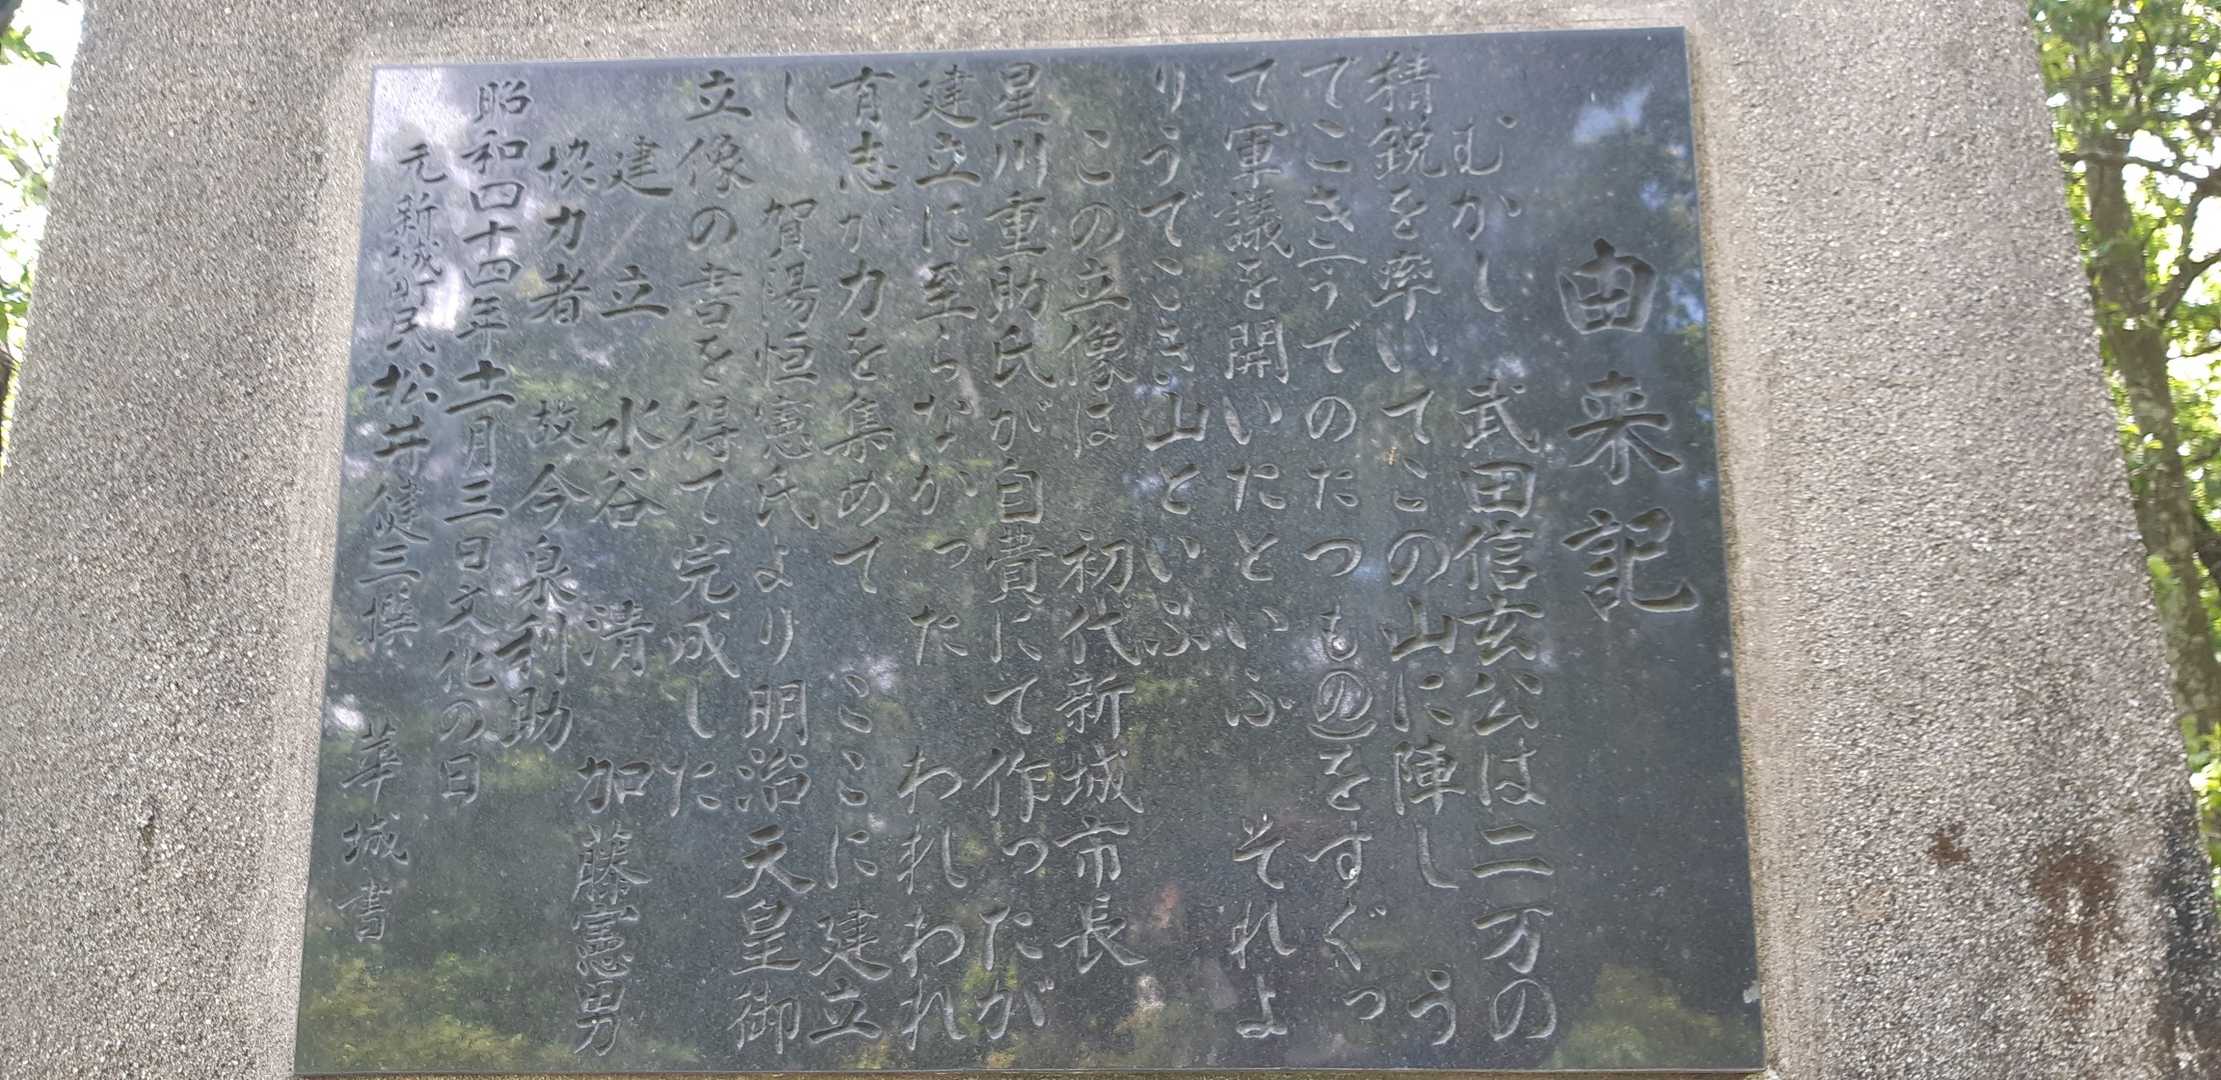 由来記
むかし 武田信玄公は二万の
精鋭を率いてこの山に陣し う
でこきうでのたつもの をすぐっ
て軍議を開いたといふ それよ
りうでこき山といふ
この立像は 初代新城市長
星川重助氏が自費にて作ったが
建立に至らなかった われわれ
有志が力を集めて ここに建立
し 賀陽恒憲氏より明治天皇御
立像の書を得て完成した
建立 水谷清 加藤憲男
協力者 故今泉利助
昭和四十四年十一月三日文化の日
元新城町民 松井健三撰 華城書